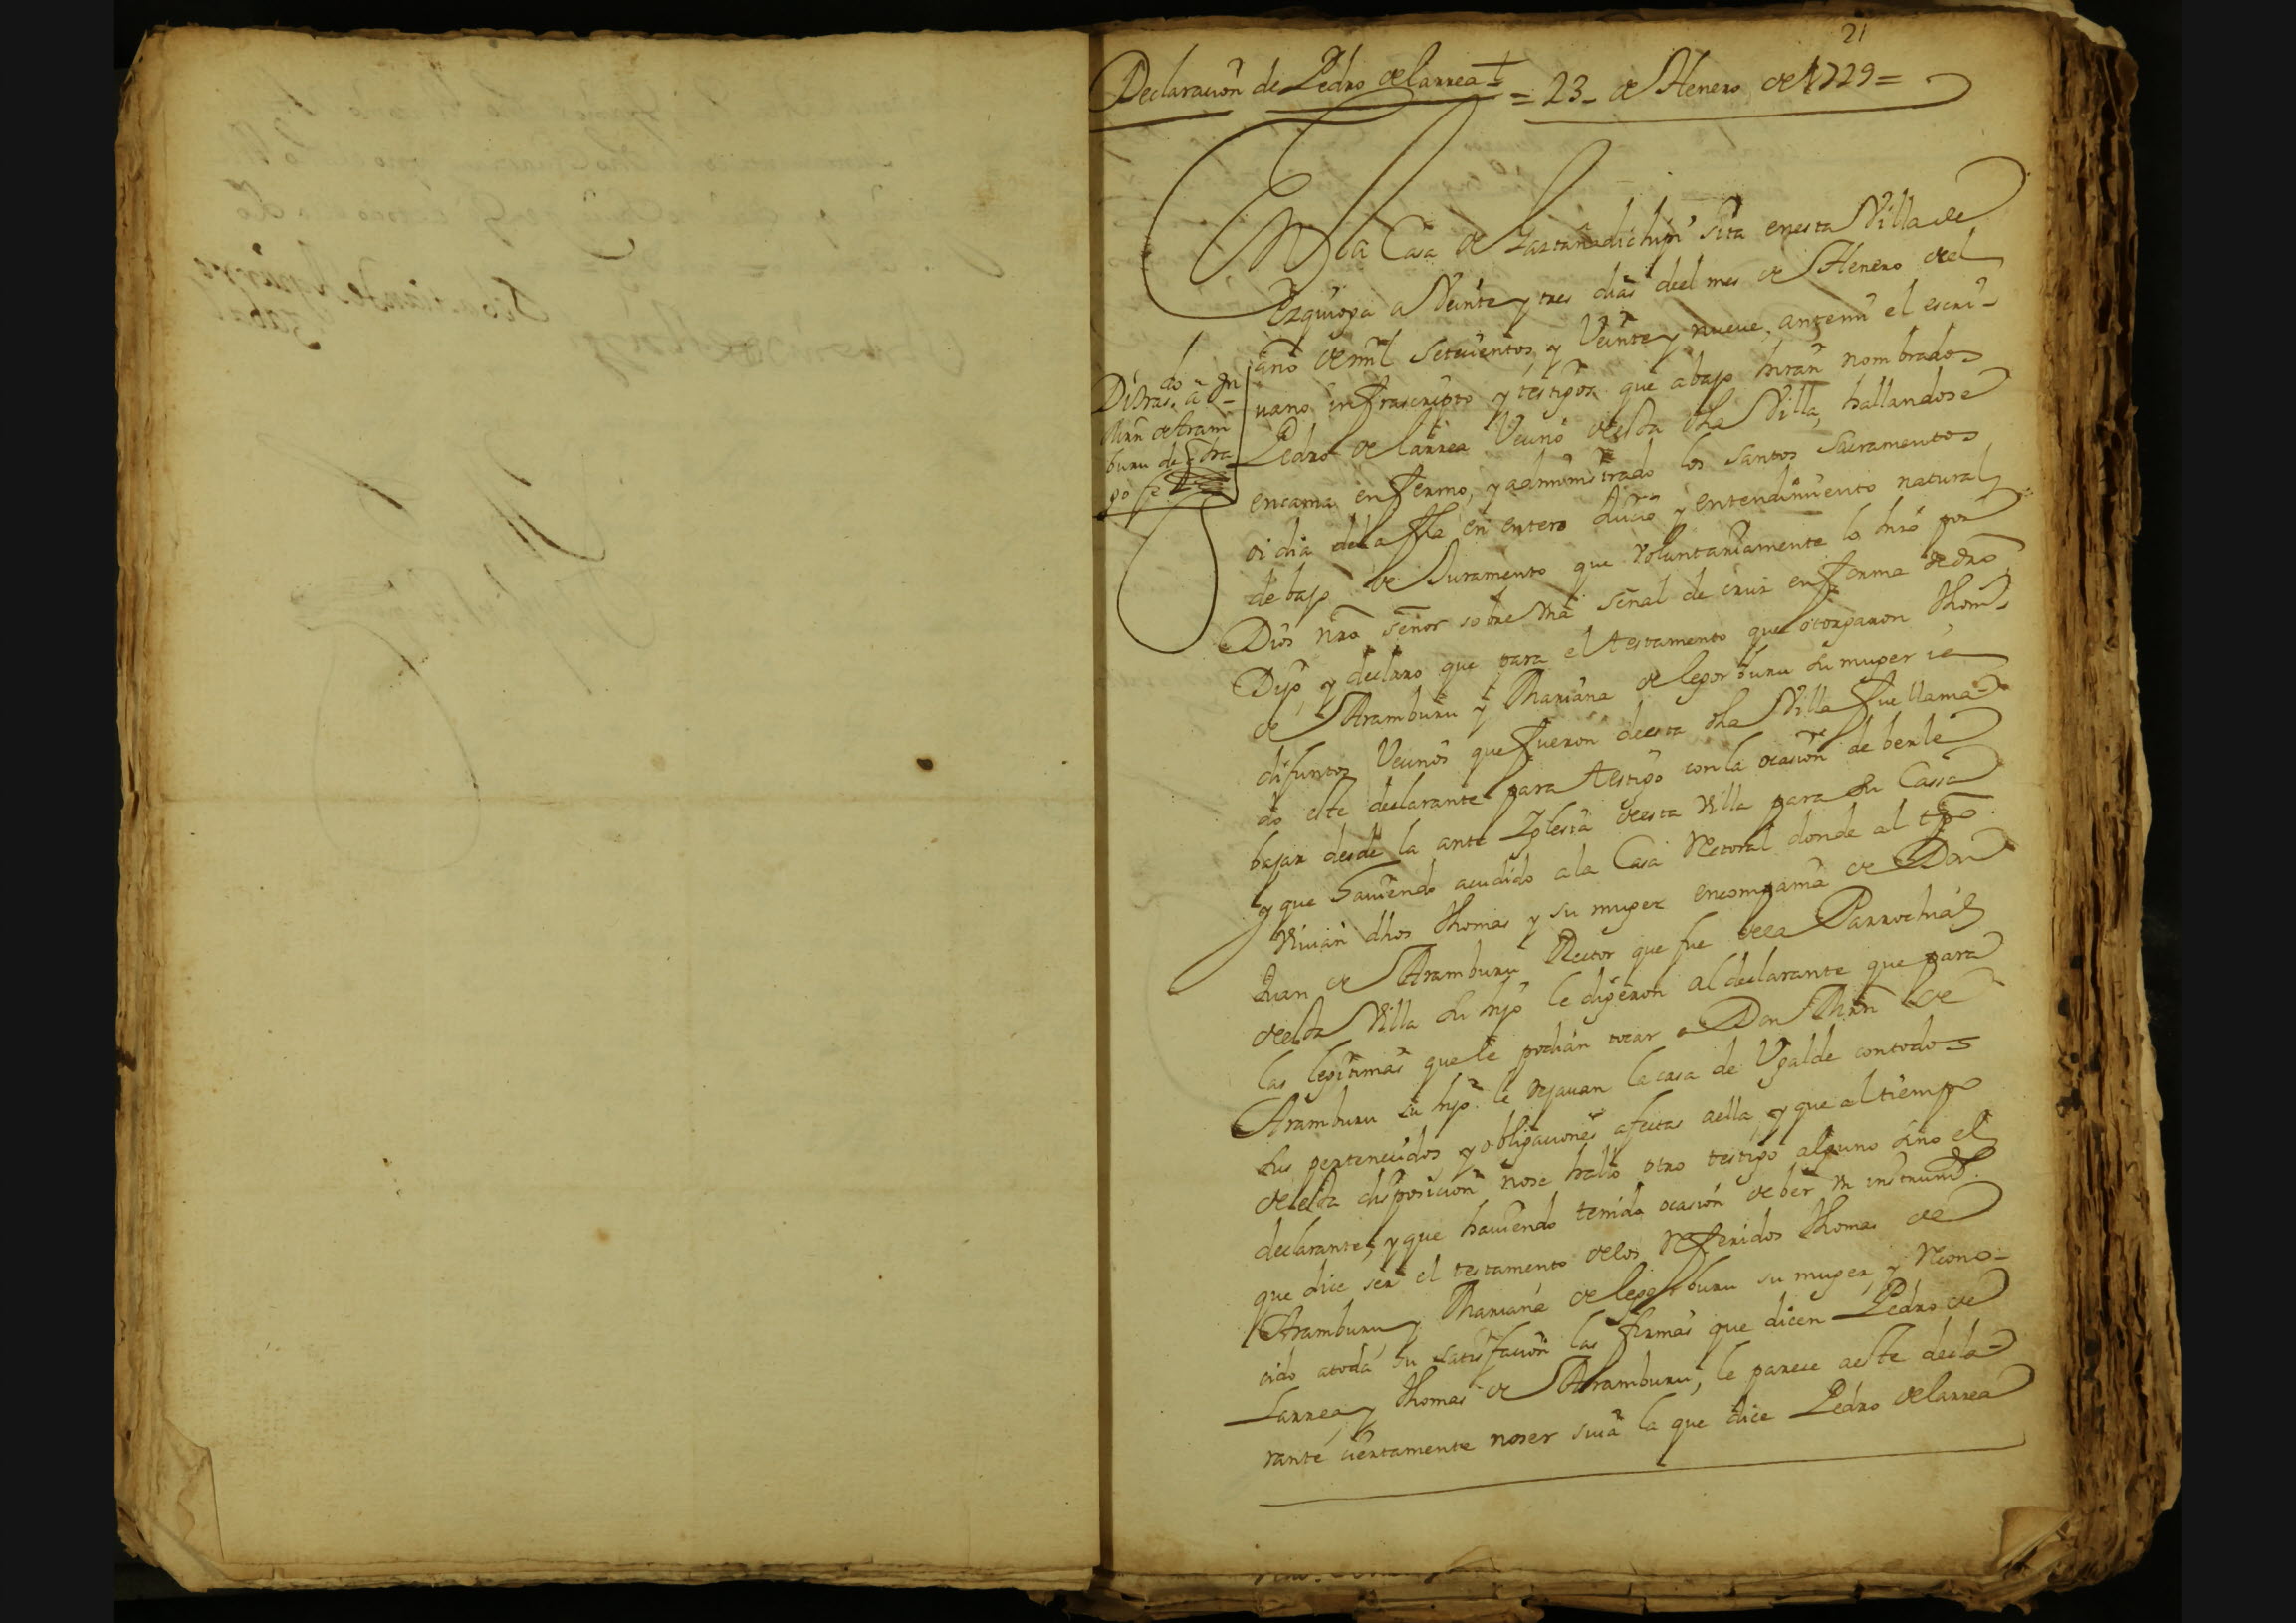 21
Declaracion de Pedro de larrea = 23 de Henero de 1729 =
En la Casa de sita en esta Villa de
Ezquioga a Veinte y tres dias deel mes de Henero del
año de mil setecientos y Veinte y nueve, antemi el escri-
uano infrascripto y testigos que abajo hiran nombrados
Pedro de larrea Vecino de esta dha Villa, hallandose
en cama enfermo, y administrado los santos sacramentos
oi dia dela fha en entero Juicio y entendimiento natural
debajo de Juramento que Voluntariamente lo hizo por
Dios nro señor sobre Vna señal de cruz en forma de dro
Dijo, y declaro que para el testamento que otorgaron thomas
de Aramburu y Mariana de legorburu su muger ia
difuntos Vecinos que fueron de esta dha Villa fue llama-
do este declarante para testigo con la ocasion de berle
bajar desde la ante Iglesia de esta Villa para su Cassa
y que hauiendo acudido a la Casa Retoral donde al tpo
Viuian dhos thomas y su muger en compania de Don
Juan de Aramburu Rector que fue de la Parrochial
de esta Villa su hijo le dijeron al declarante que para
las legitimas que le podian tocar a Don Mrn de
Aramburu su hijo le dejauan la casa de Vgalde con todos
sus pertenecidos y obligaciones afectas a ella, y que al tiempo
de esta disposicion no se hallo otro testigo alguno sino el
declarante, y que hauiendo tenido ocasion de ber Vn instrumto
que dice ser el testamento de los Referidos thomas de
Aramburu y Mariana de legorburu su muger, y Recono-
cido a toda su satisfacion las firmas que dicen Pedro de
Larrea, y thomas de Aramburu, le parece a este decla-
rante ciertamente no ser suia la que dice Pedro de larrea
do a Dn
Mrn de Aram
buru de